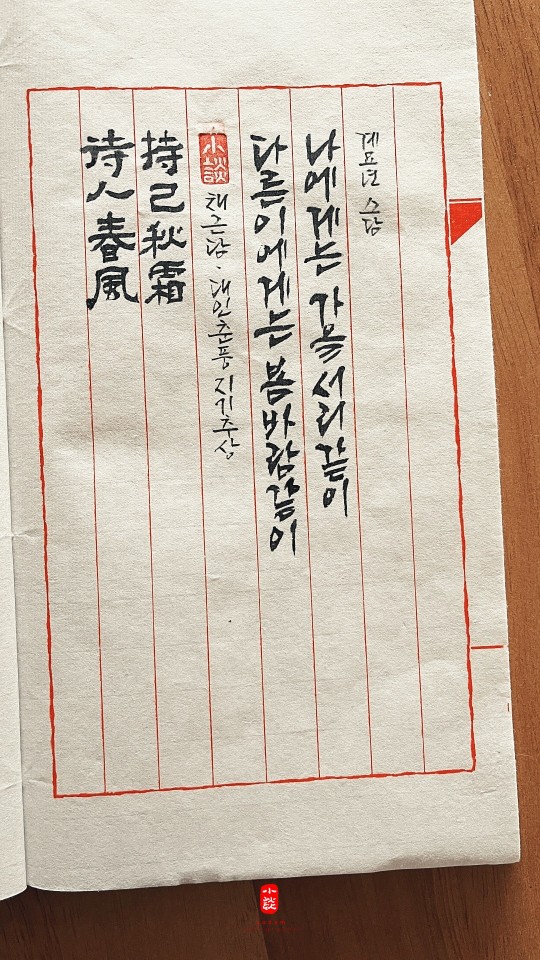 계묘년 소담
나에게는 가을서리같이
다른이에게는 봄바람같이
小談
채근담 · 대인춘풍 지기추상
持己秋霜
待人春風
小談